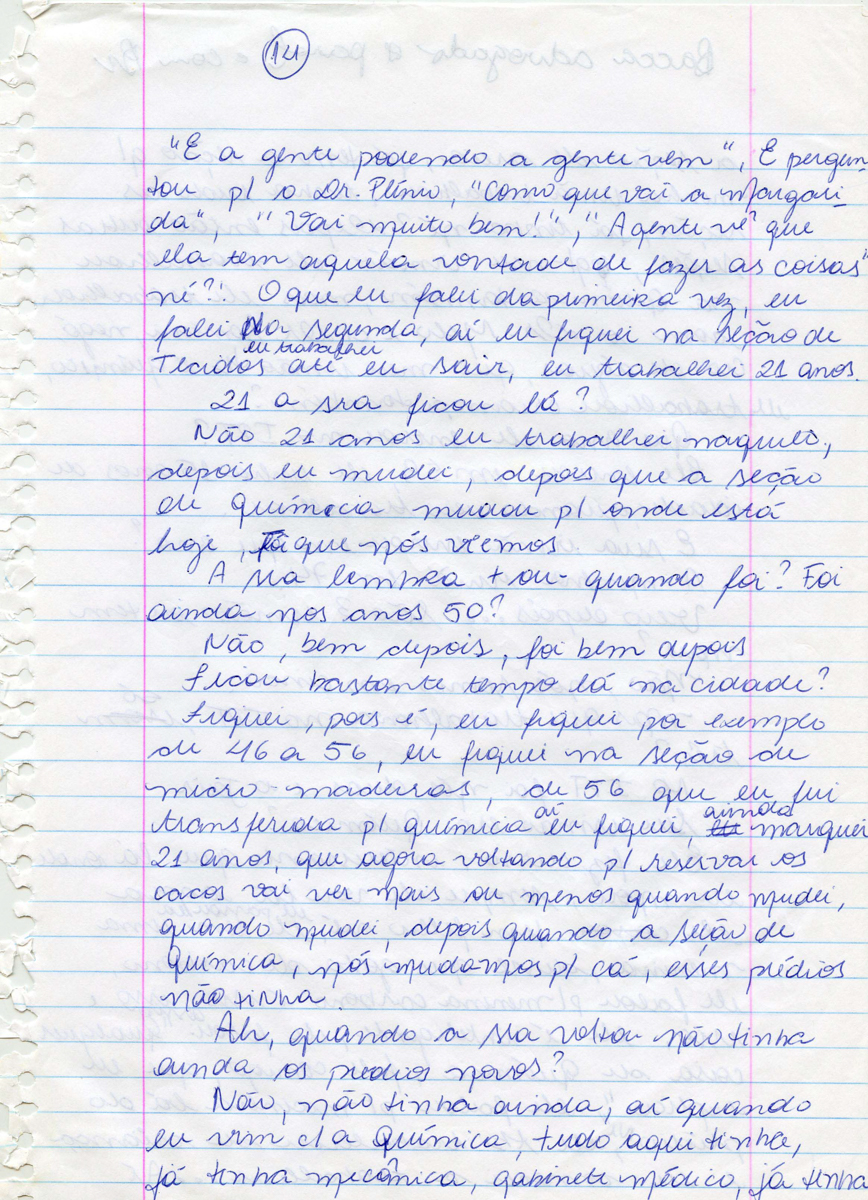 14
"E a gente podendo a gente vem", E pergun-
tou p/ o Dr. Plínio, "Como que vai a Margari-
da", "Vai muito bem!", "A gente vê que
ela tem aquela vontade de fazer as coisas"
né?! O que eu falei da primeira vez, eu
falei Na segunda, aí eu fiquei na seção de
eu trabalhei
Tecidos até eu sair, eu trabalhei 21 anos.
21 a sra ficou lá?
Não 21 anos eu trabalhei naquilo,
depois eu mudei, depois que a seção
de química mudou p/ onde está
hoje, que nós viemos
A sra lembra + ou - quando foi? Foi
ainda nos anos 50?
Não, bem depois, foi bem depois
Ficou bastante tempo lá na cidade?
Fiquei, pois é, eu fiquei por exemplo
de 46 a 56, eu fiquei na seção de
micro-madeiras, de 56 que eu fui
transferida p/ química aí eu fiquei, ainda marquei
21 anos, que agora voltando p/ os
cacos vai ver mais ou menos quando mudei,
quando mudei, depois quando a seção de
química, nós mudamos p/ cá, esses prédios
não tinha.
Ah, quando a sra voltou não tinha
ainda os prédios novos?
Não, não tinha ainda, aí quando
eu vim c/ a Química, tudo aqui tinha,
já tinha mecânica, gabinete médico, já tinha